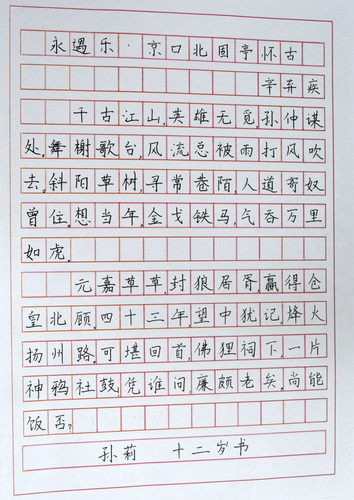 永遇乐·京口北固亭怀古
辛弃疾
千古江山,英雄无觅,孙仲谋
处,舞榭歌台,风流总被雨打风吹
去,斜阳草树,寻常巷陌,人道寄奴
曾住,想当年,金戈铁马,气吞万里
如虎,
元嘉草草,封狼居胥,赢得仓
皇北顾,四十三年,望中犹记,烽火
扬州路,可堪回首,佛狸祠下,一片
神鸦社鼓,凭谁问,廉颇老矣,尚能
饭否?
孙莉 十二岁书